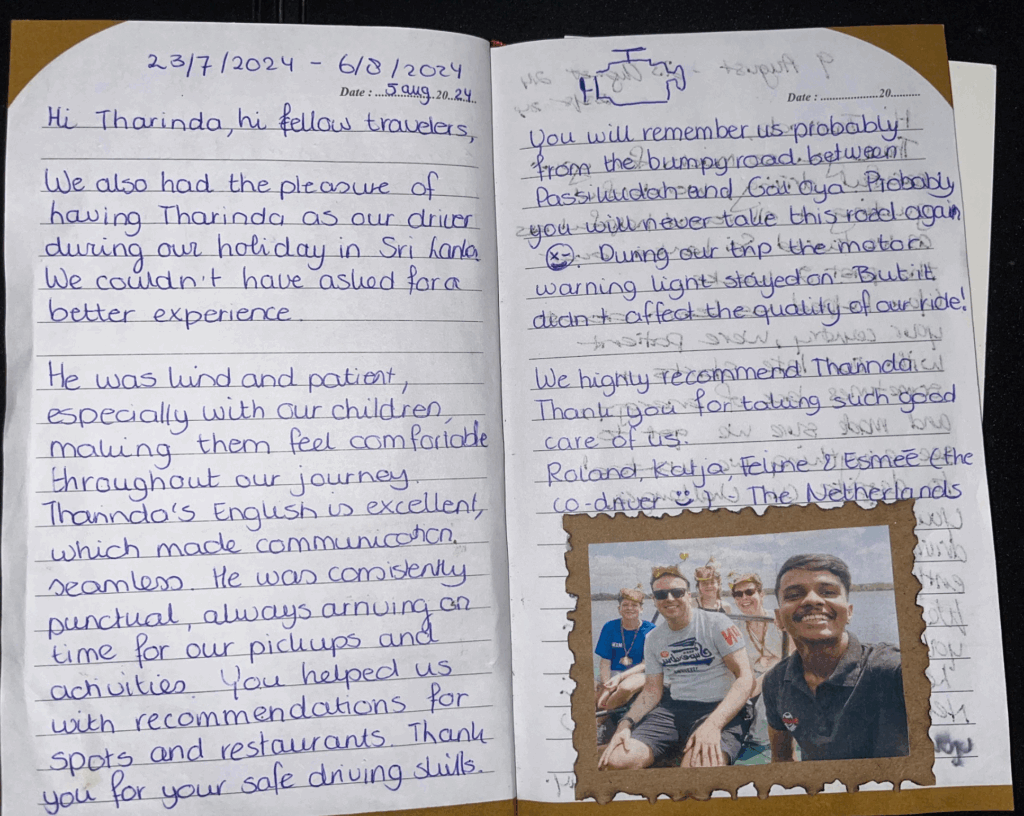 23/7/2024 - 6/8/2024
Date : 5 aug 2024
Hi Tharinda, hi fellow travelers,
We also had the pleasure of
having Tharinda as our driver
during our holiday in Sri Lanka.
We couldn't have asked for a
better experience.
He was kind and patient,
especially with our children,
making them feel comfortable
throughout our journey.
Tharinda's English is excellent,
which made communication
seamless. He was consistently
punctual, always arriving on
time for our pickups and
activities. You helped us
with recommendations for
spots and restaurants. Thank
you for your safe driving skills.
Date : 20
You will remember us probably
from the bumpy road between
Passikudah and Oya. Probably
you will never take this road again
. During our trip the motor
warning light stayed on. But it
didn't affect the quality of our ride!
We highly recommend Tharinda
Thank you for taking such good
care of us.
Roland, Katja, Feline & Esmee (the
co-driver ☺) The Netherlands